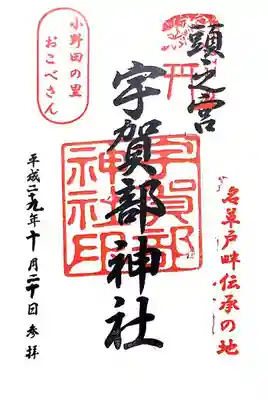 名草戸畔伝承の地
頭之宮
宇賀部神社
宇賀部
神社印
小野田の里
おこべさん
平成二十九年十月二十日参拝